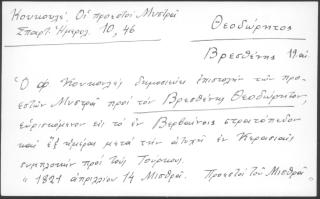 Κουκουλέ, Οἱ προεστοὶ Μυστρᾶ
Σπαρτ. Ἡμερολ. 10, 46
Θεοδώρητος
Βρεσθένης 19 αἰ.
Ὁ Φ Κουκουλές δημοσιεύει ἐπιστολὴν τῶν προ-
εστῶν Μυστρᾶ πρὸς τὸν Βρεσθένη Θεοδώρητον,
εὑρισκόμενον εἰς τὸ ἐν Βερβαίνοις στρατόπεδον
καὶ ἕξ ἡμέρας μετὰ τὴν ἀτυχῆ ἐν Κερασιαῖς
συμπλοκὴν πρὸς τοὺς Τούρκους.
" 1821 ἀπριλλίου 14 Μισθρᾶ. Προεστοὶ τοῦ Μισθρᾶ "